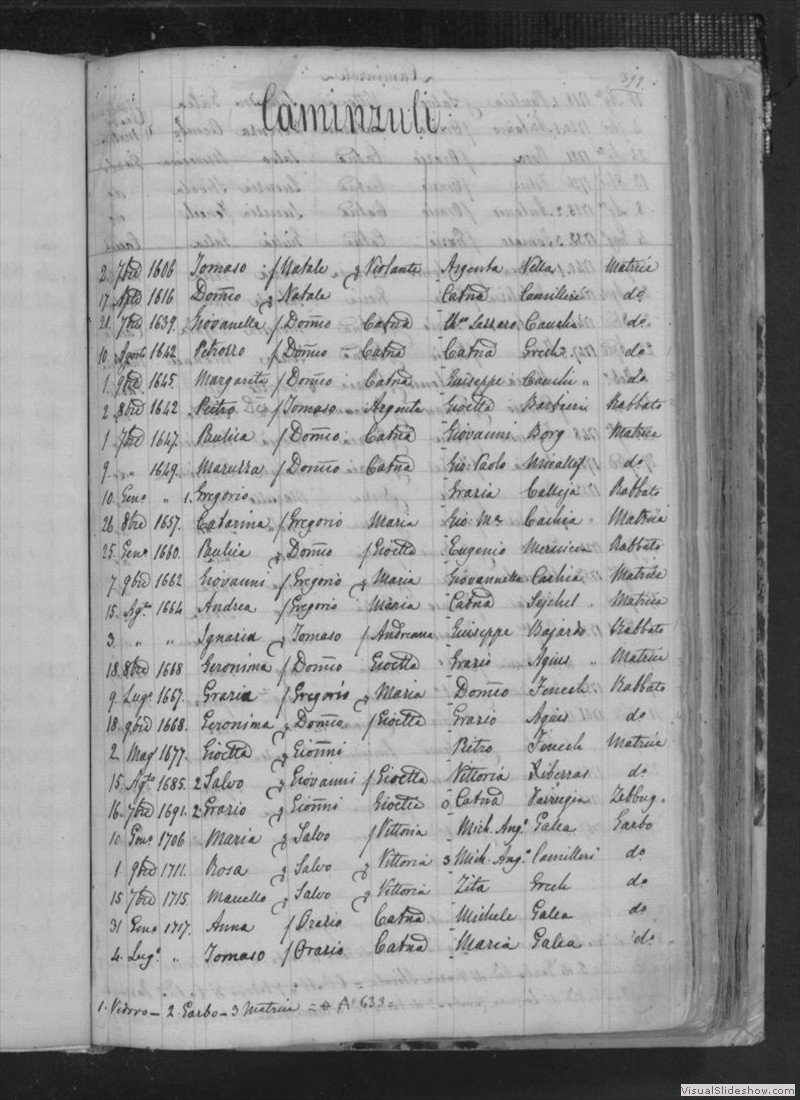 399.
Caminzuli
2. 7bre 1606 Tomaso f Natale q Violante Argenta Vella Matrice
17. Agto 1616 Domco q Natale Catna Camilleri do
21. 7bre 1639. Giovanella f Domco Catna Lazzaro Cauchi do
10. Agost 1642 Petrosso f Domco = Catna Catna Grech do
1. 9bre 1645. Margarita f Domco Catna Giuseppe Cauchi " do
2 8bre 1642 Pietro f Tomaso Argenta Gioetta Barberi Rabbato
1 7bre 1647. Paulica f Domco Catna Giovanni Borg Matrice
9. " 1649. Maruzza f Domco Catna Gio: Paolo Micallef do
10. Geno " 1. Gregorio Grazia Calleja Rabbato
26 8bre 1657. Catarina f Gregorio Maria Gio Ma Cachia Matrice
25. Geno 1660. Paulica q Domco f Gioetta Eugenio Rabbato
7. 9bre 1662 Giovanni f Gregorio q Maria Giovannella Cachia Matrice
15. Agto 1664 Andrea f Gregorio Maria Catna Sejchel Matrice
3. " " Ignazia q Tomaso f Andreana Giuseppe Bajardo Rabbato
18. 8bre 1668 Geronima f Domco Gioetta Grazio Agius " Matrice
9. Lugo 1667. Grazia f Gregorio q Maria Domco Fenech Rabbato
18. 9bre 1668. Geronima q Domco f Gioetta Grazio Agius do
2. Mago 1677. Gioetta q Gionni Pietro Fenech Matrice
15. Agto 1685. 2 Salvo q Giovanni f Gioetta Vittoria Xiberras do
16. 7bre 1691. 2 Grazio q Gionni Gioetta o Catna Farrugia Zebbug.
10 Geno 1706 Maria q Salvo f Vittoria Mich. Ango Galea Garbo
1. 9bre 1711. Rosa q Salvo q Vittoria 3 Mich. Ango Camilleri do
15 7bre 1715. Marcello q Salvo q Vittoria Zita Grech do
31 Geno 1717. Anna f Orazio Catna Michele Galea do
4. Lugo " Tomaso f Orazio Catna Maria Galea do
1. Vedovo — 2. Garbo — 3 Matrice = A 633 =
VisualSlideshow.com